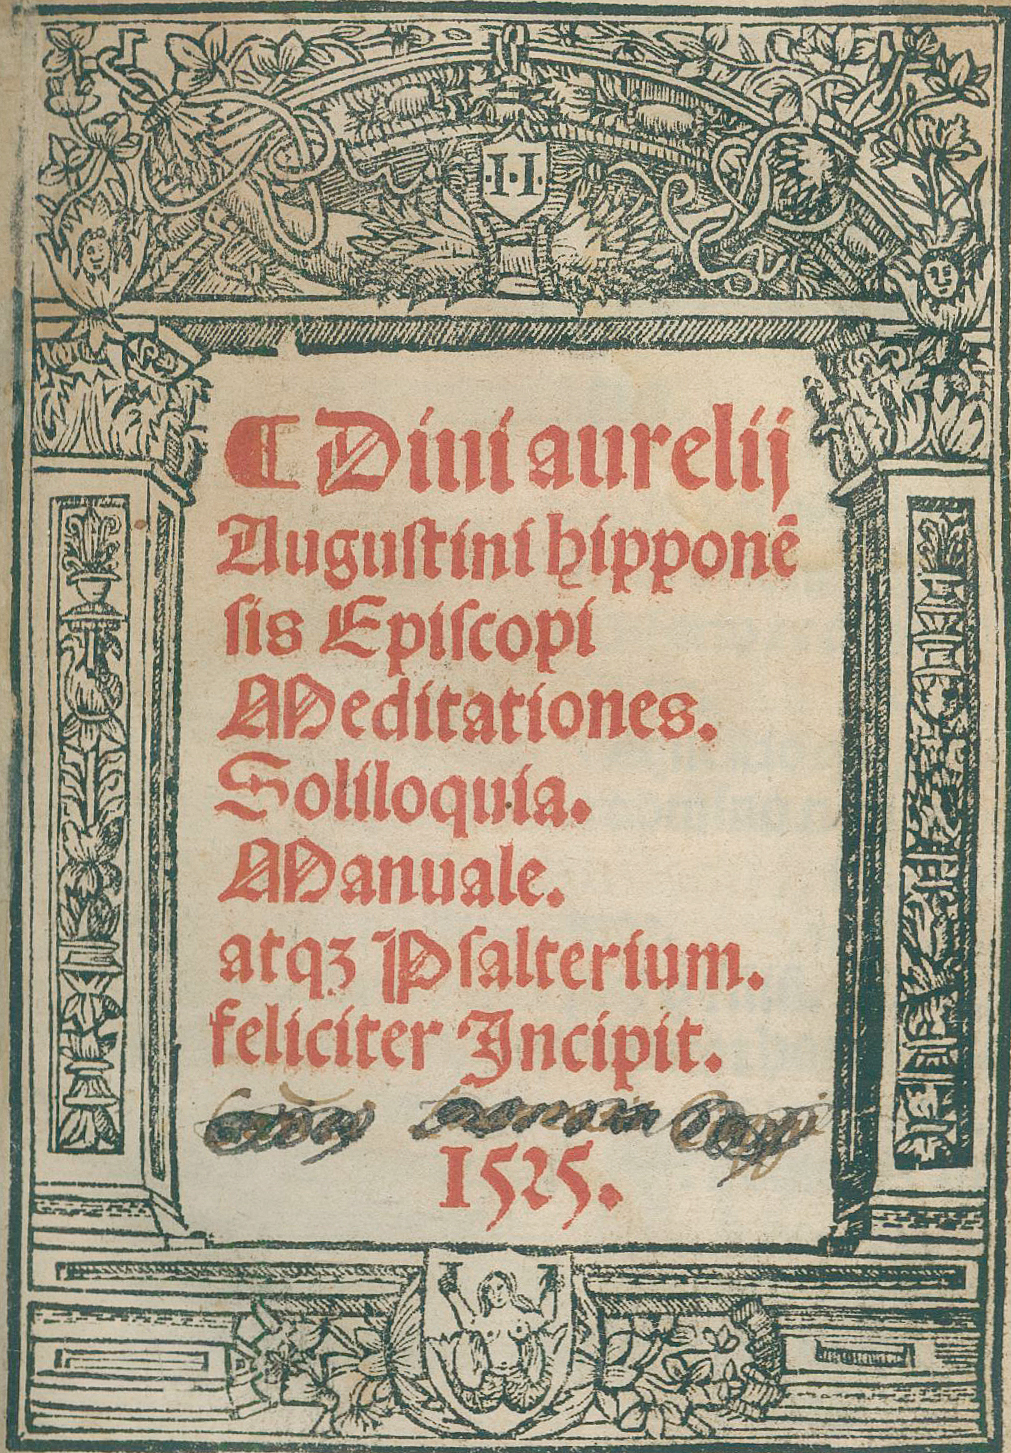 ·I·I·
⸿ Diui aurelij
Auguſtini hipponē
ſis Epiſcopi
Meditationes.
Soliloquia.
Manuale.
atqꝫ Pſalterium.
feliciter Incipit.
1525.